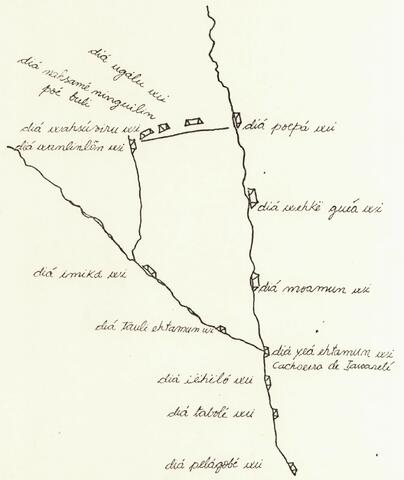 diá ugálu wii
diá nahsamé ninguilin
poé buli
diá wahsúviru wi
diá wanlinlĩn wi
diá poepá wii
diá wehkë guéá wi
diá imika wi
diá moamun wi
diá Tauli ehtamun wi
diá yeá ehtamun wi
Cachoeira de Iauareté
diá iéhëló wii
diá tabolé wii
diá pelágobé wii